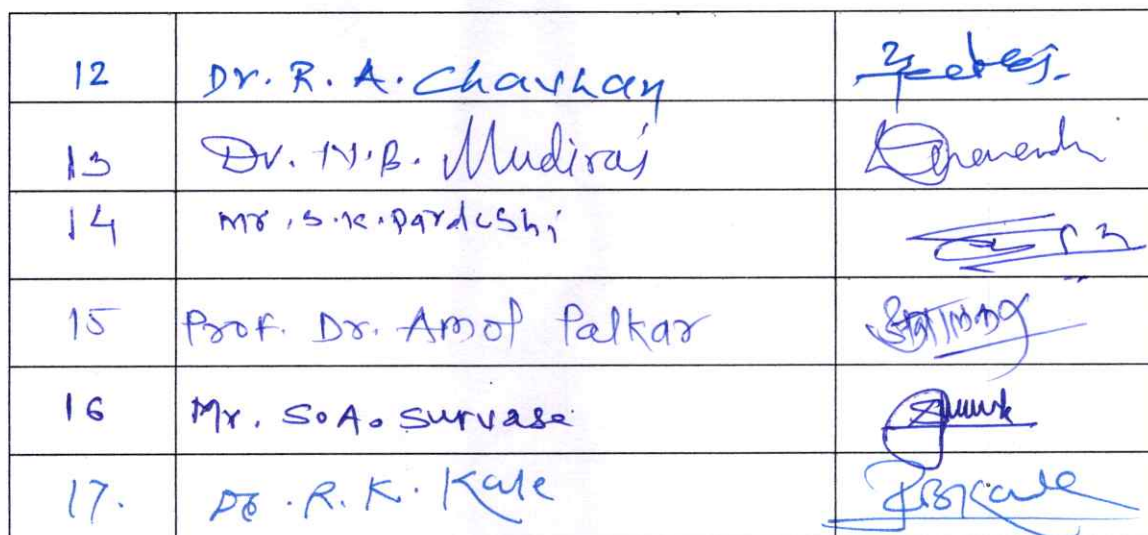 12 Dr. R. A. Chavhan
13 Dr. N. B. Mudiraj
14 Mr. S. K. Pardeshi
15 Prof. Dr. Amol Palkar
16 Mr. S. A. Survase
17. Dr. R. K. Kale RBKale